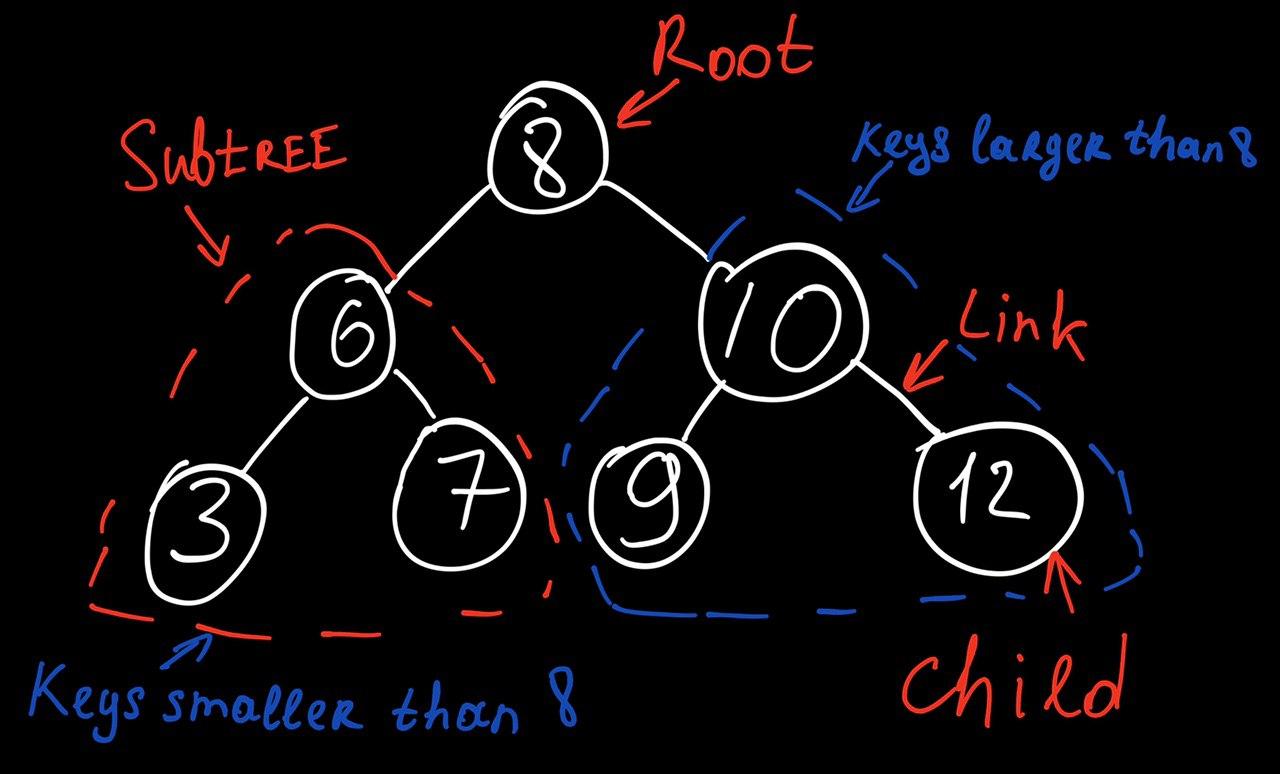 Root
SubtREE
Keys larger than 8
8
6
10
Link
3
7
9
12
Keys smaller than 8
child